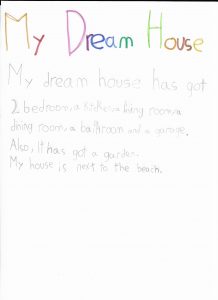 My Dream House
My dream house has got
2 bedroom, a kitchen, a living room, a
dining room, a bathroom and a garage.
Also, It has got a garden.
My house is next to the beach.